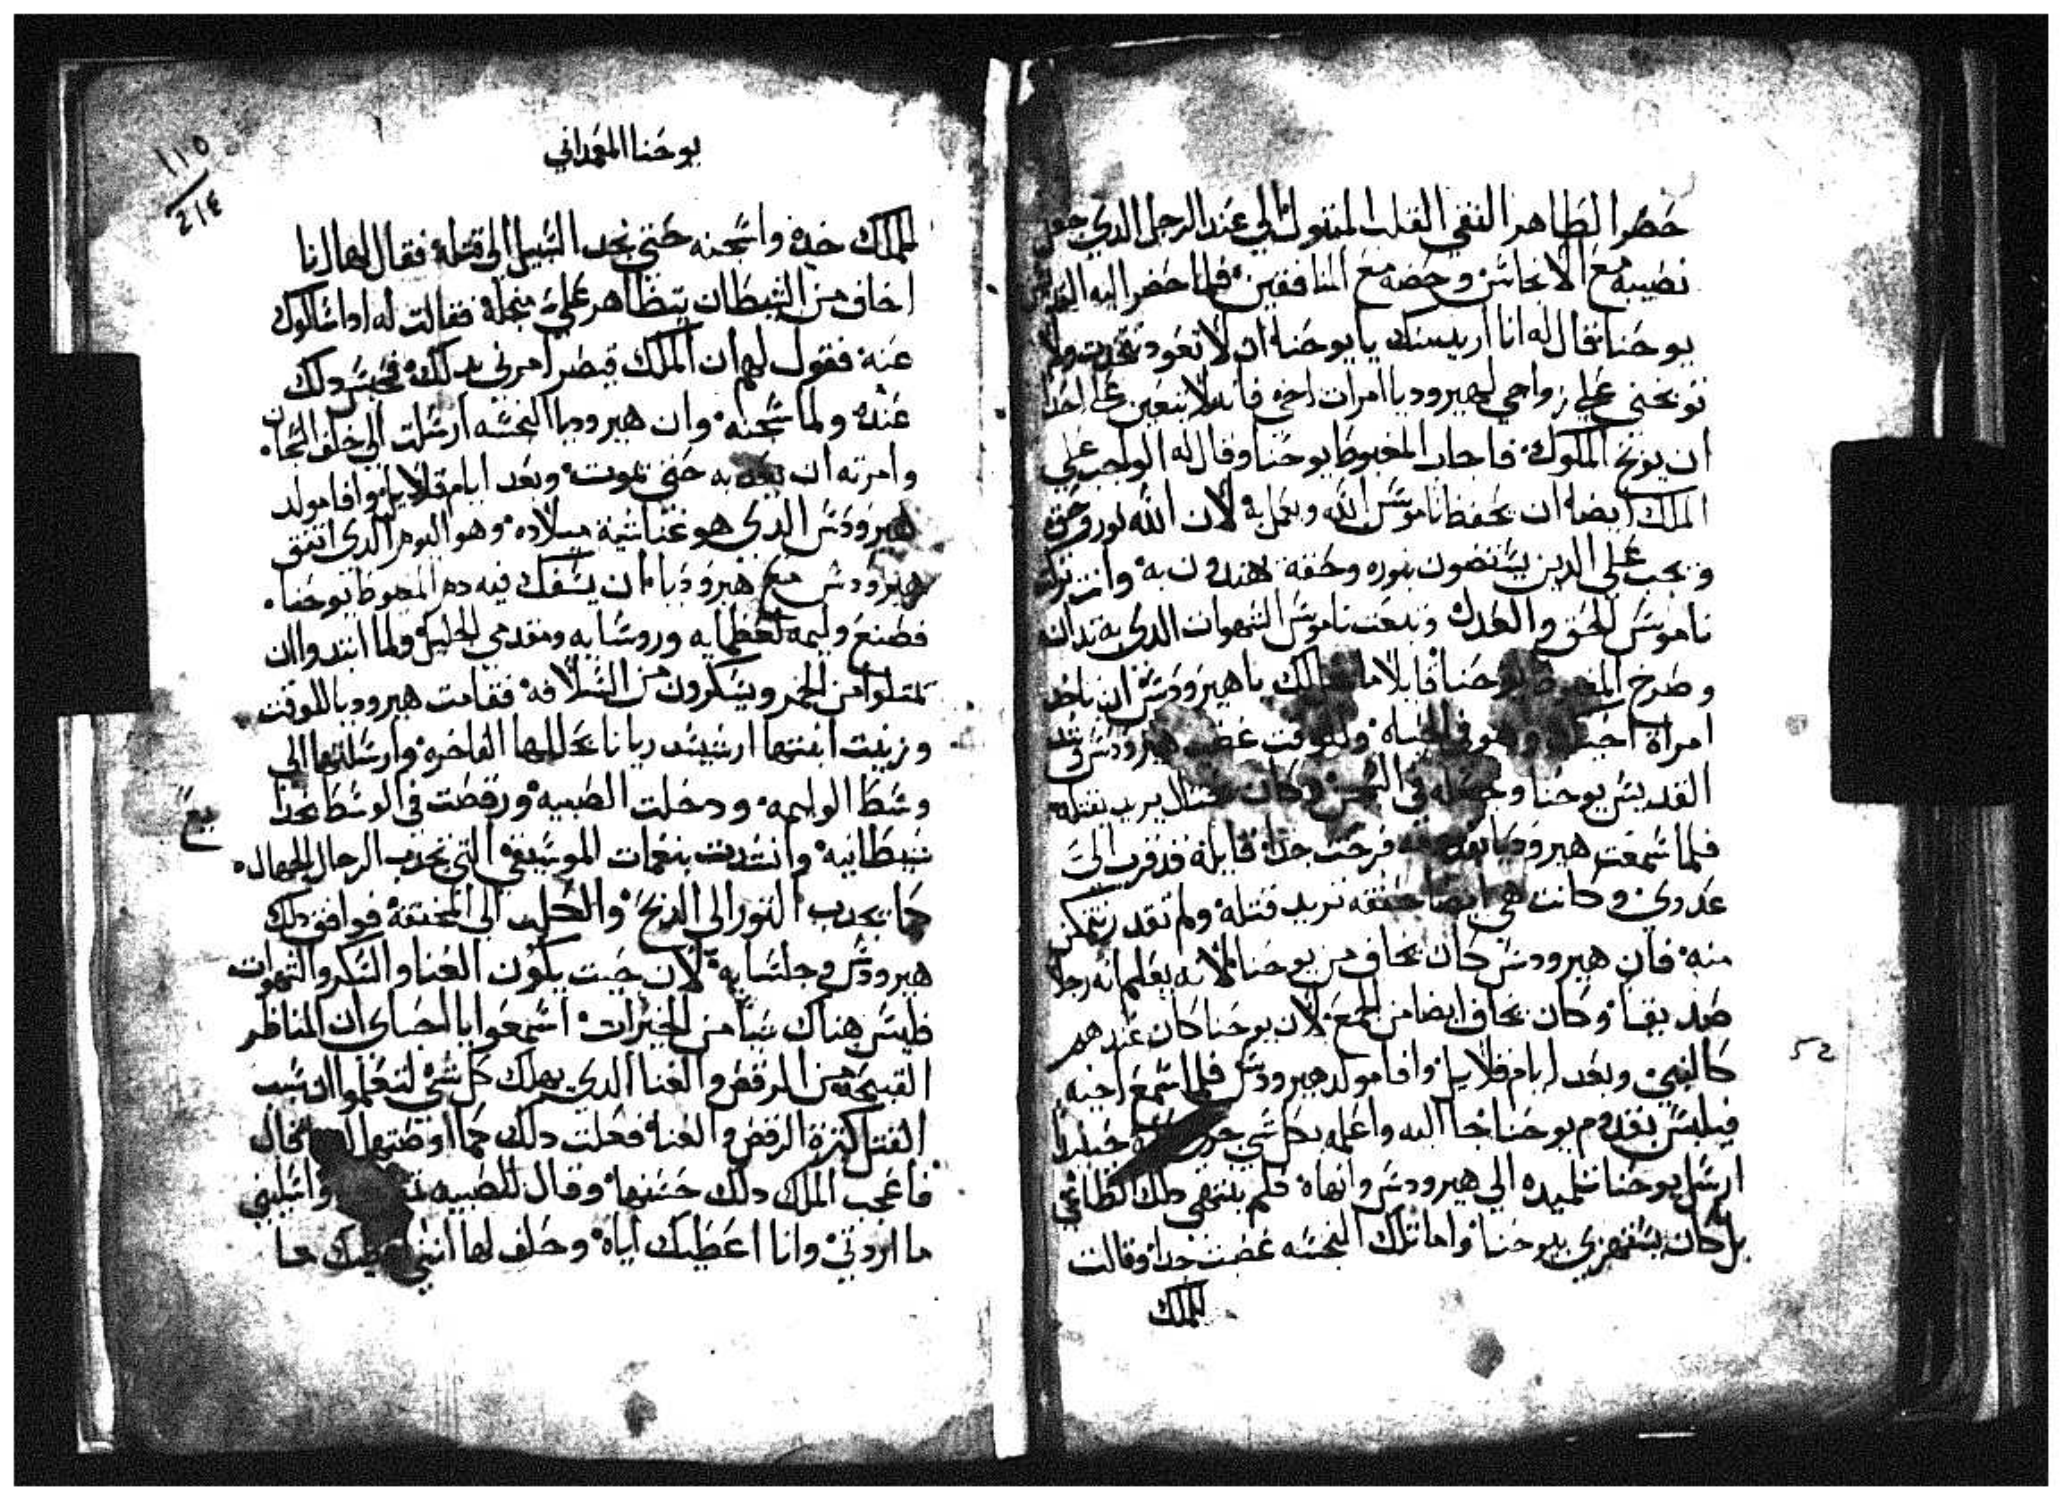 حضر الطاهر النقي القلب المتبول الي عند الرجل الدي جعل
نصيبه مع الانجاس وحضه مع المنافقين فلما حضر اليه
يوحنا فقال له انا اريدك يا يوحنا ان لا تعود تتحدت ولا
توبخني علي زواجي لهيروديا امرات اخي فانه لا ينبغي علي احدا
ان يوبخ الملوك فاجاب المغبوط يوحنا وقال له الواجب علي
الملك ايضا ان يحفظ ناموس الله ويعمل به لان الله نور وحق
ويجب علي الدين يستضون بنوره وحقه يهتدون به وانت تركت
ناموس الحق والعدل وتبعت ناموس الشهوات الدي به تدان
وصرخ يوحنا قايلا ما لك يا هيرودس ان تاخد
امراة اخيك وهو في الحياه وللوقت غضب هيرودس
القديس يوحنا وجعله في الحبس وكان يريد يقتله
فلما سمعت هيروديا فرحت جدا قايلة قد قرب الي
عدوي وكانت هي ايضا تريد قتله ولم تقدر تتمكن
منه فان هيرودس كان يخاف من يوحنا لانه يعلم انه رجلا
صديقا وكان يخاف ايضا من الجمع لان يوحنا كان عندهم
كالنبي وبعد ايام قلايل وافا مولد هيرودس فلما سمع اخيه
فيلبس بقدوم يوحنا جا اليه واعلمه بكل شي
ارسل يوحنا تلميده الي هيرودس وانهاه فلم ينتهي دلك الطاغي
بل كان يستهزي بيوحنا واما تلك النجسه غضبت جدا وقالت
للملك
52
يوحنا المعمداني
١١٥
٢١٤
للملك خده واسجنه حتي نجد السبيل الي قتله فقال لها انا
اخاف من الشيطان يتظاهر علي فقالت له ادا سالوك
عنه فقول لهم ان الملك قيصر امرني بدلك فحبس دلك
عنده ولما سجنه وان هيروديا النجسه ارسلت الي خلف السجان
وامرته ان به حتي يموت وبعد ايام قلايل وافا مولد
هيرودس الدي هو ميلاده وهو اليوم الدي اتفق
هيرودس مع هيروديا ان يسفك فيه دم المغبوط يوحنا
فصنع وليمه لعظمايه وروسايه ومقدمي الجليل ولما ابتدوا ان
يمتلوا من الخمر ويسكرون من السلافه فقامت هيروديا للوقت
وزينت ابنتها بحللها الفاخره وارسلتها الي
وسط الوليمه ودخلت الصبيه ورقصت في الوسط
شيطانيه وانشدت بنغمات الموسيقي التي تجدب الرجال الجهال
كما يجدب التور الي الدبح والكلب الي المخنقة فوافق دلك
هيرودس وجلسايه لان حيت يكون الغنا والسكر والشهوات
فليس هناك شيا من الخيرات اسمعوا يا احباي ان المناظر
القبيحة من الرقص والغنا الدي يهلك كل شي لتعلموا ان سبب
القتل كترة الرقص والغنا فعلت دلك كما اوصتها
فاعجب الملك دلك حسنها وقال للصبيه واسيليني
ما اردتي وانا اعطيك اياه وحلف لها انني اعطيك ما